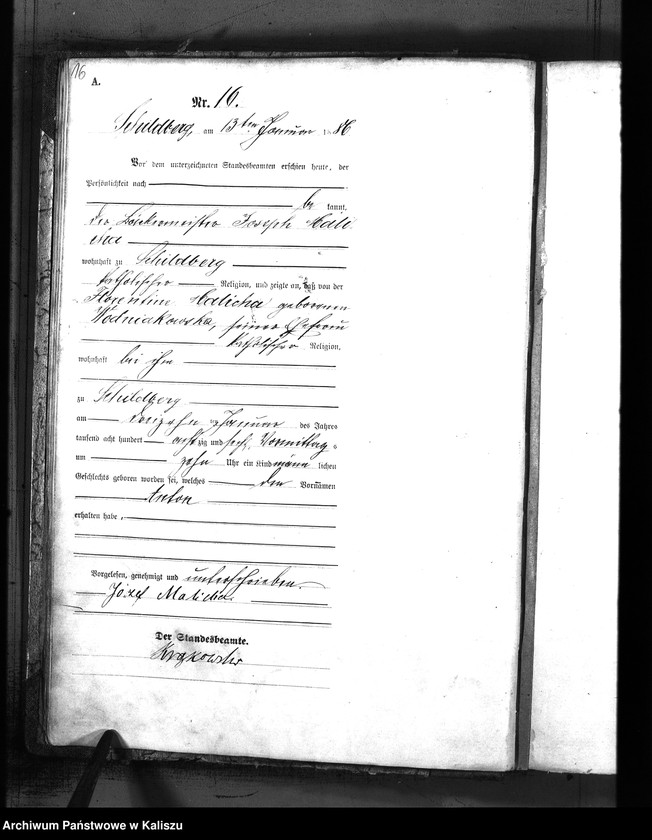 16
A.
Nr. 16.
Schildberg, am 13ten Januar 1886
Vor dem unterzeichneten Standesbeamten erschien heute, der
Persönlichkeit nach
be kannt,
der Bäckermeister Joseph Mali
cha
wohnhaft zu Schildberg
katholischer Religion, und zeigte an, daß von der
Florentine Malicha geborenen
Wodniakowska, seiner Ehefrau
katholischer Religion,
wohnhaft bei ihm
zu Schildberg
am dreizehn Januar des Jahres
tausend acht hundert achtzig und sechs, Vormittag s
um zehn Uhr ein Kind männ lichen
Geschlechts geboren worden sei, welches den Vornamen
Anton
erhalten habe.
Vorgelesen, genehmigt und unterschrieben.
Józef Malicha.
Der Standesbeamte.
Archiwum Państwowe w Kaliszu